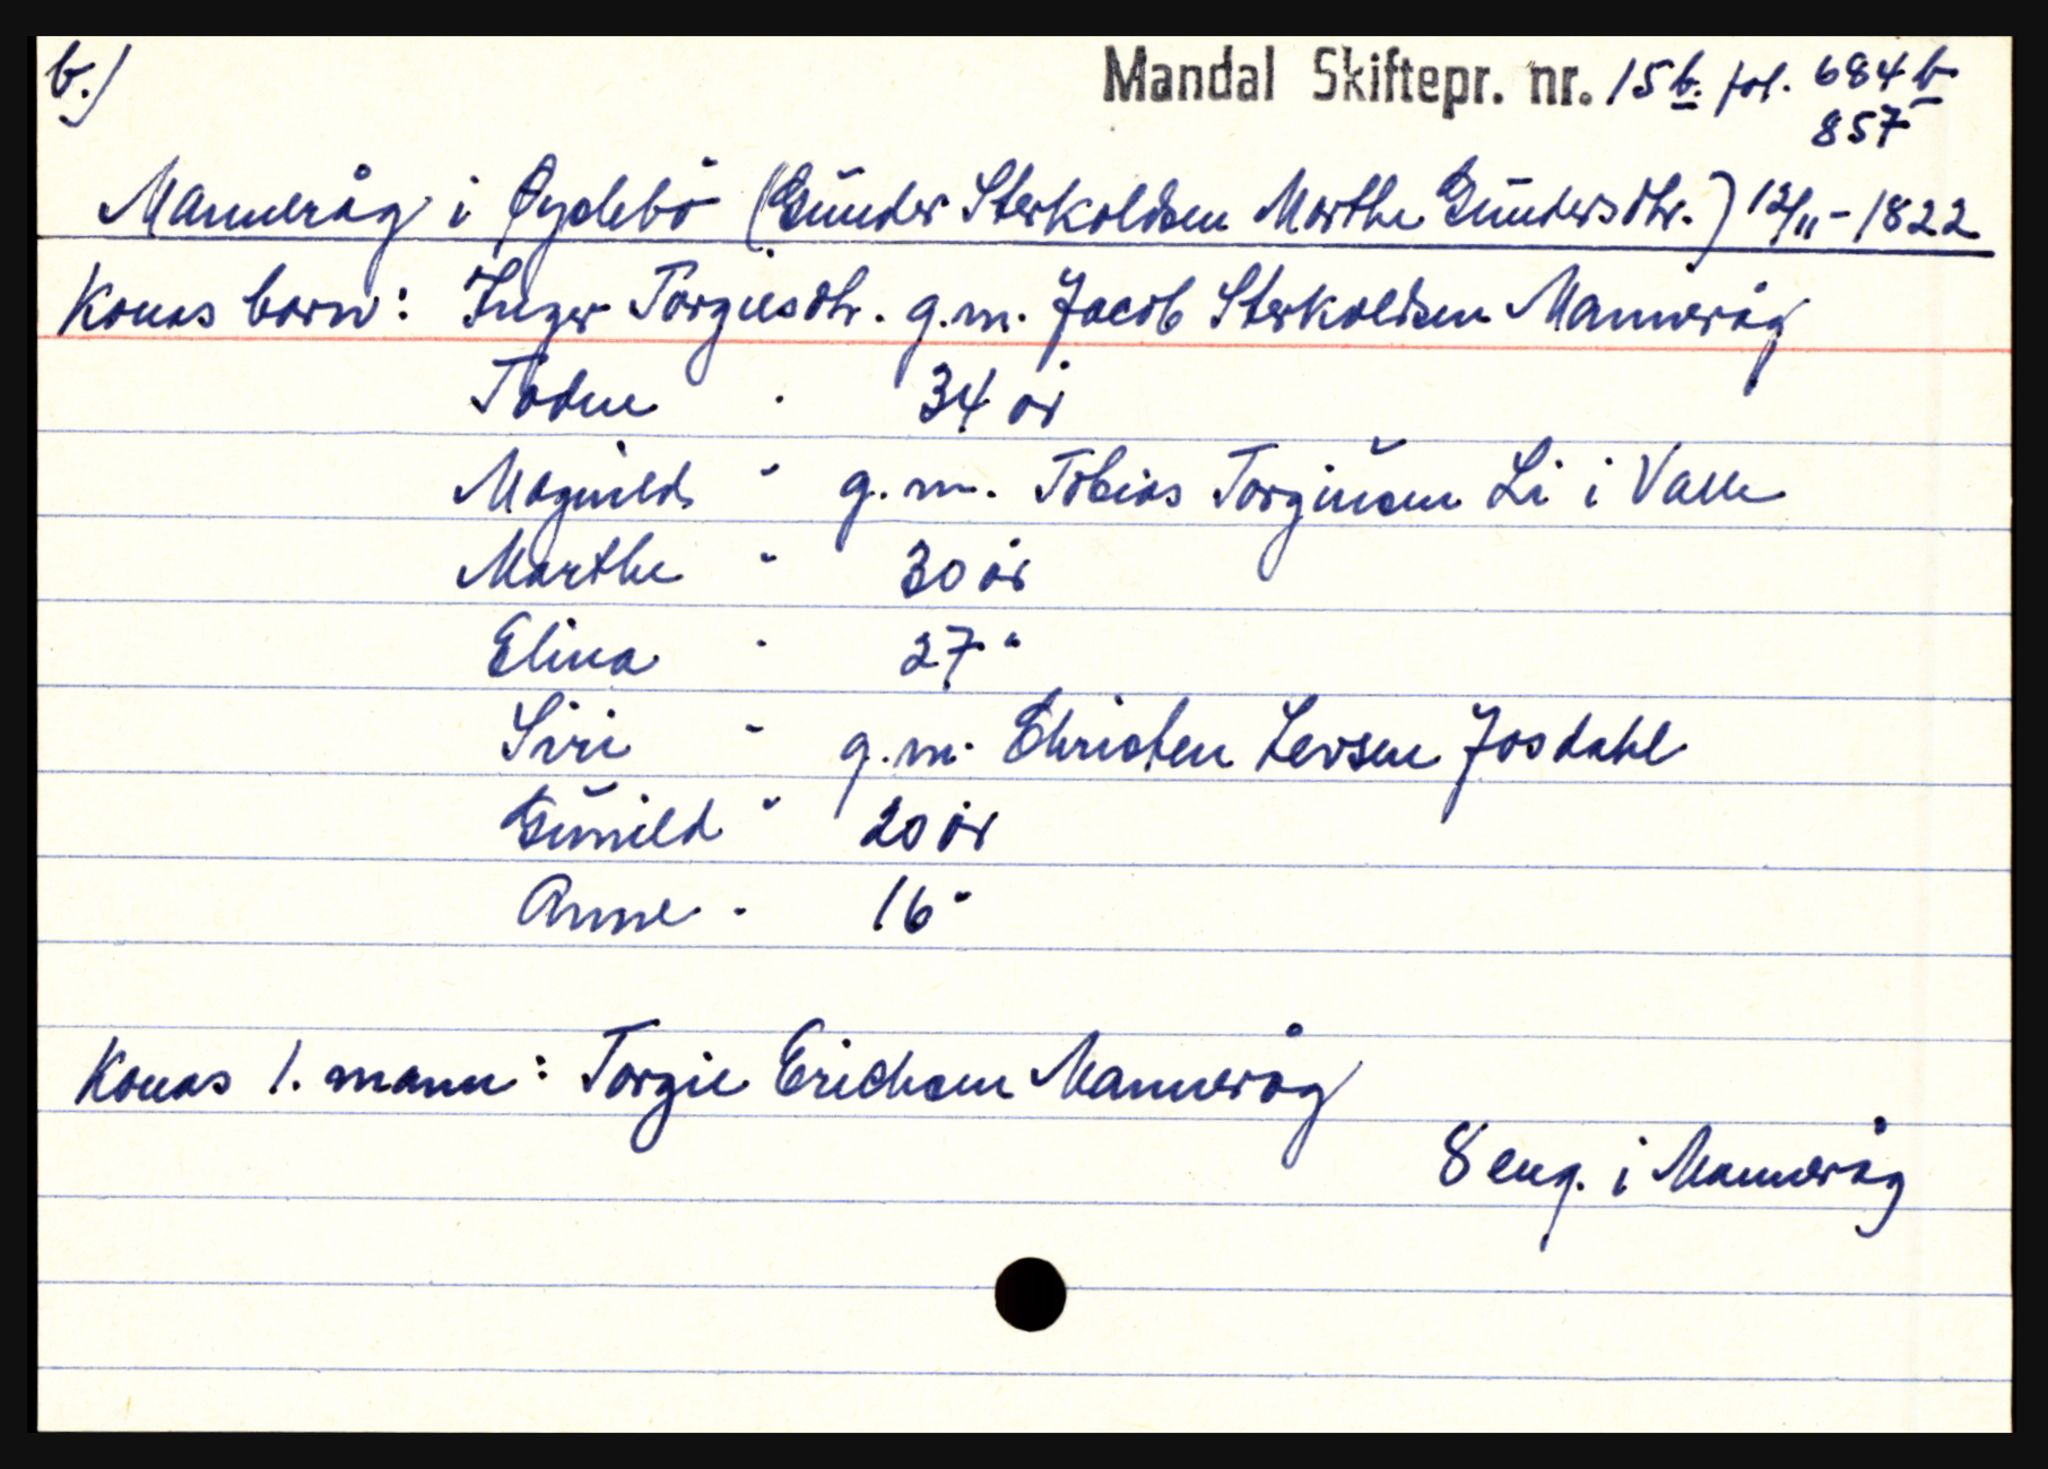 b.) Mandal Skiftepr. nr. 15b. fol. 684b
857
Manneråg i Øydebø (Gŭnder Sterkoldsen Marthe Gŭndersdtr.) 12/11-1822
Konas born: Inger Torgiesdtr. g.m. Jacob Sterkoldsen Manneråg
Todne " 34 år
Magnild " g.m. Tobias Torgiŭsen Li i Valle
Marthe " 30 år
Elina " 27 "
Siri " g.m. Christen Larsen Josdahl
Gŭnild " 20 år
Anne " 16 "
Konas 1. mann: Torgie Erichsen Manneråg
8 eng. i Manneråg